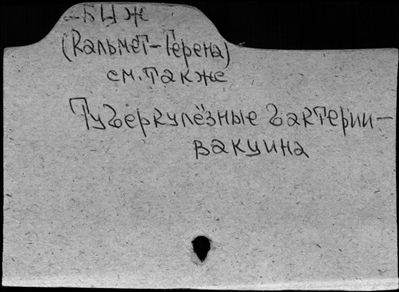 -БЦЖ
(Кальмет-Герена)
см. также
Туберкулёзные бактерии-
вакцина